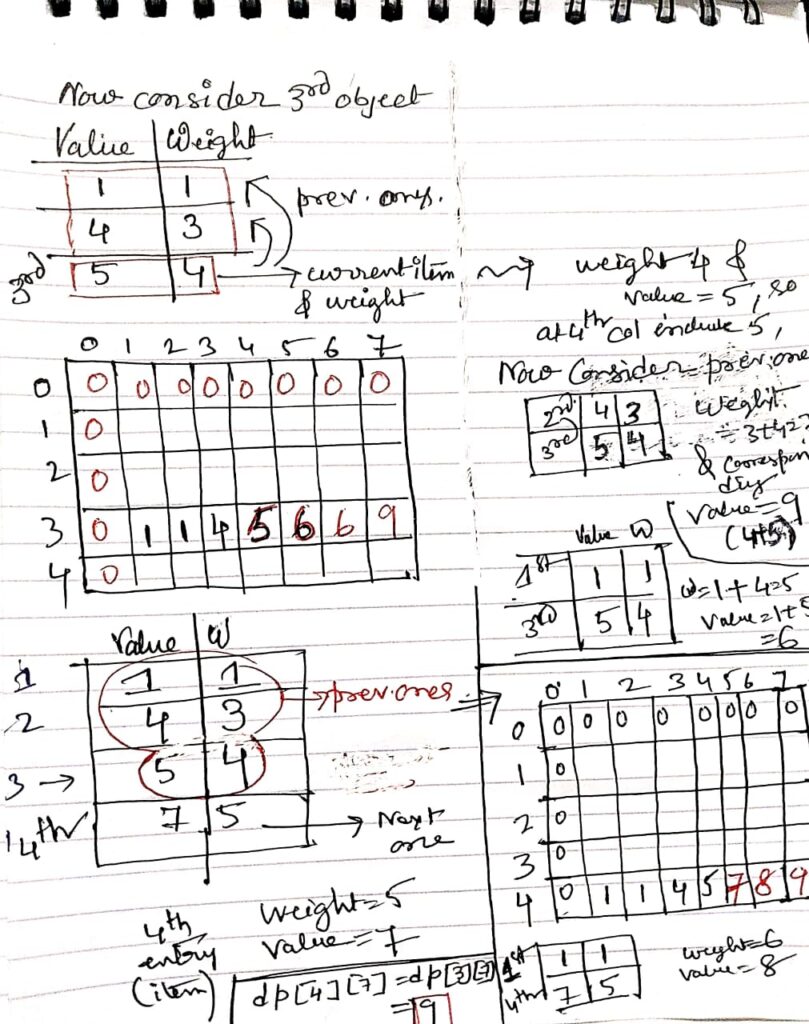 Now consider 3rd object
Value Weight
1 1
4 3
3rd 5 4
prev. ones.
current item
& weight
weight 4 &
value = 5, so
at 4th col include 5,
Now Consider prev. one
2nd 4 3
3rd 5 4
weight
= 3+4=7
& correspon
ding
value=9
(4+5)
0 1 2 3 4 5 6 7
0 0 0 0 0 0 0 0 0
1 0
2 0
3 0 1 1 4 5 6 6 9
4 0
Value W
1st 1 1
3rd 5 4
w=1+4=5
value=1+5
=6
Value W
1 1 1
2 4 3
3 → 5 4
4th 7 5
prev. ones
Next
one
0 1 2 3 4 5 6 7
0 0 0 0 0 0 0 0 0
1 0
2 0
3 0
4 0 1 1 4 5 7 8 9
4th
entry
(item)
weight=5
value=7
dp[4][7]=dp[3][7]
=9
1st 1 1
4th 7 5
weight=6
value=8